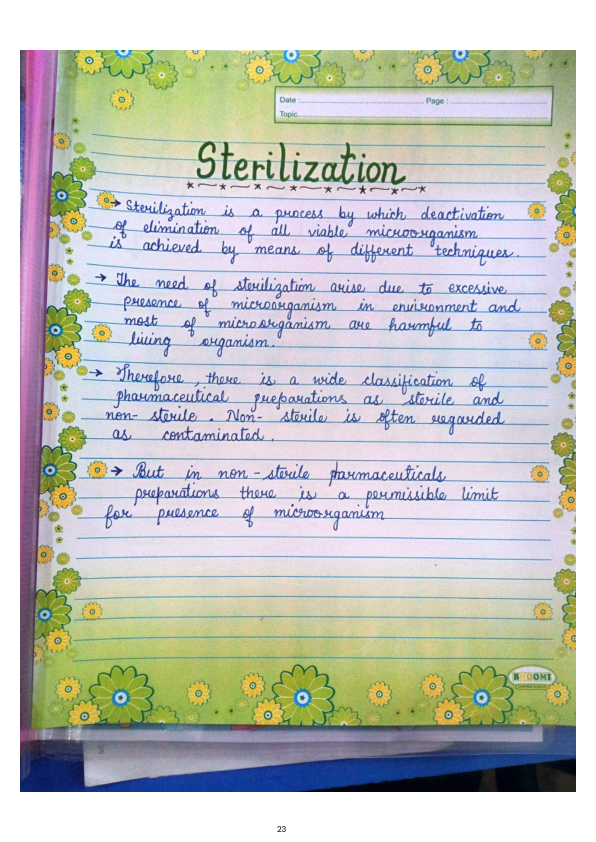 Date : Page :
Topic
Sterilization
→ Sterilization is a process by which deactivation
of elimination of all viable microorganism
is achieved by means of different techniques.
→ The need of sterilization arise due to excessive
presence of microorganism in environment and
most of microorganism are harmful to
living organism.
→ Therefore, there is a wide classification of
pharmaceutical preparations as sterile and
non-sterile. Non-sterile is often regarded
as contaminated.
→ But in non-sterile pharmaceuticals
preparations there is a permissible limit
for presence of microorganism
BHOOMI
23